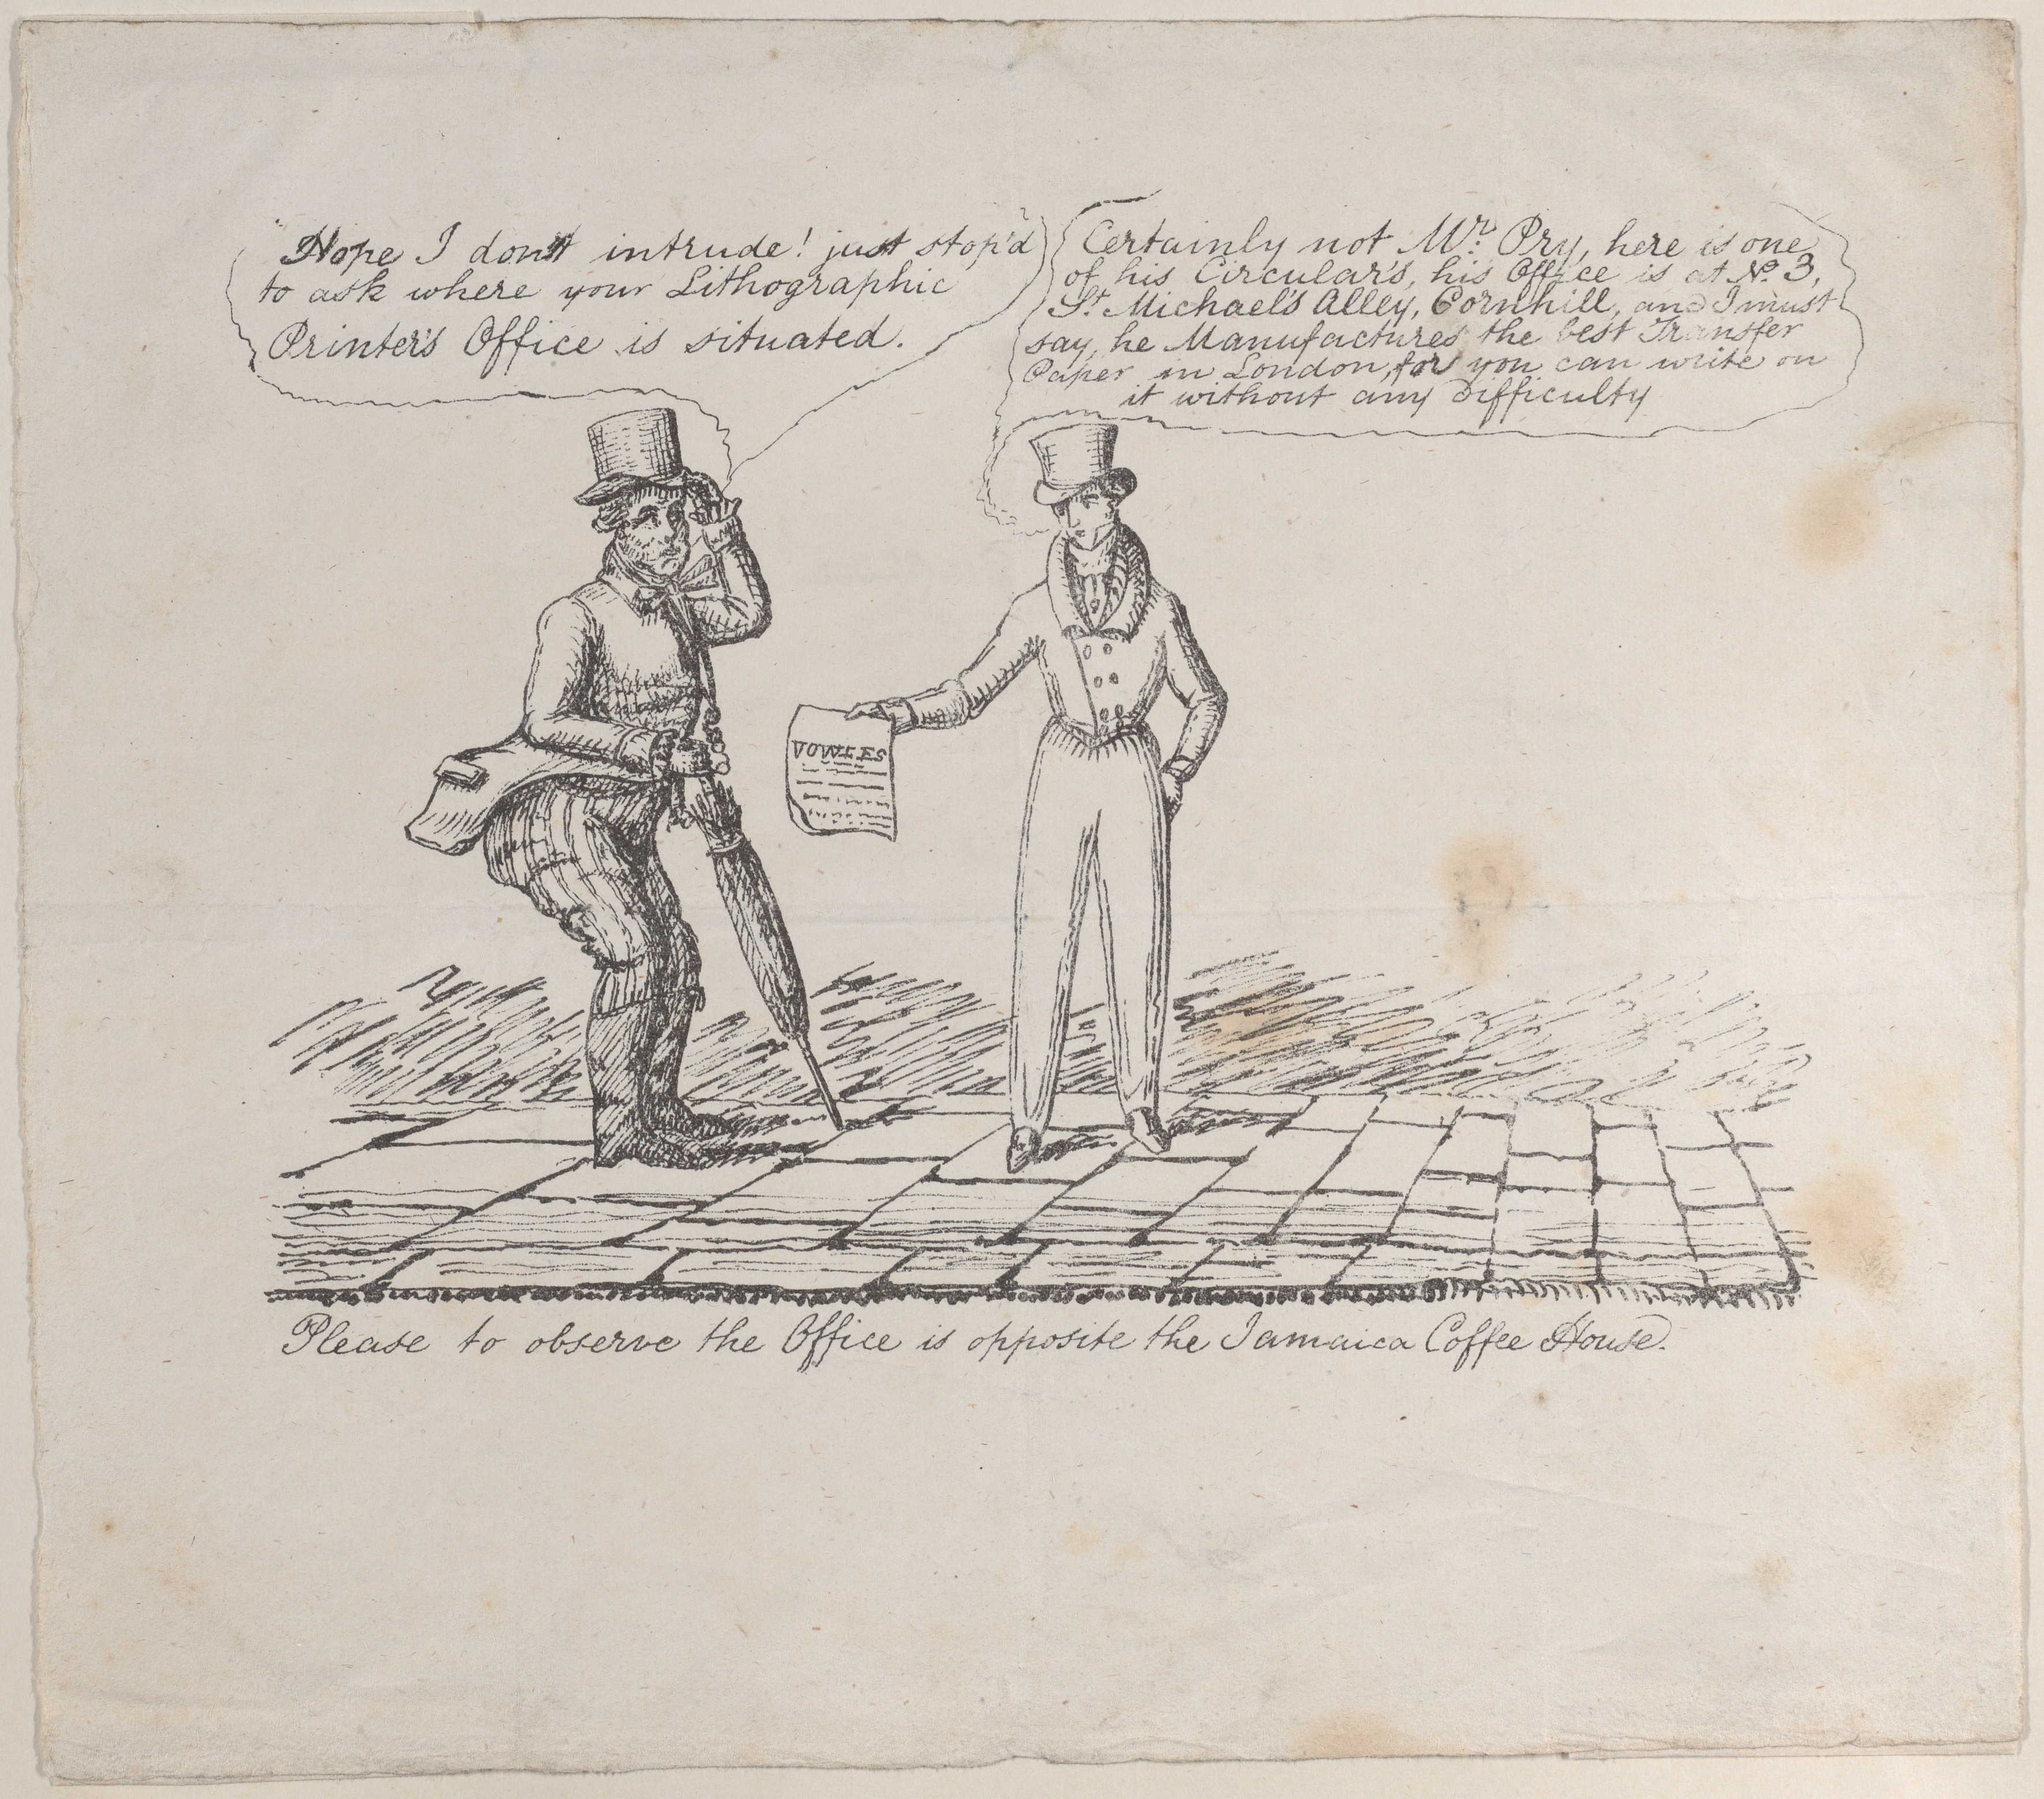 "Hope I don't intrude! just stop'd
to ask where your Lithographic
Printer's Office is situated.
Certainly not Mr. Pry, here is one
of his Circular's, his Office is at No. 3,
St. Michael's Alley, Cornhill, and I must
say, he Manufactures the best Transfer
Paper in London, for you can write on
it without any Difficulty
VOWLES
Please to observe the Office is opposite the Jamaica Coffee House.